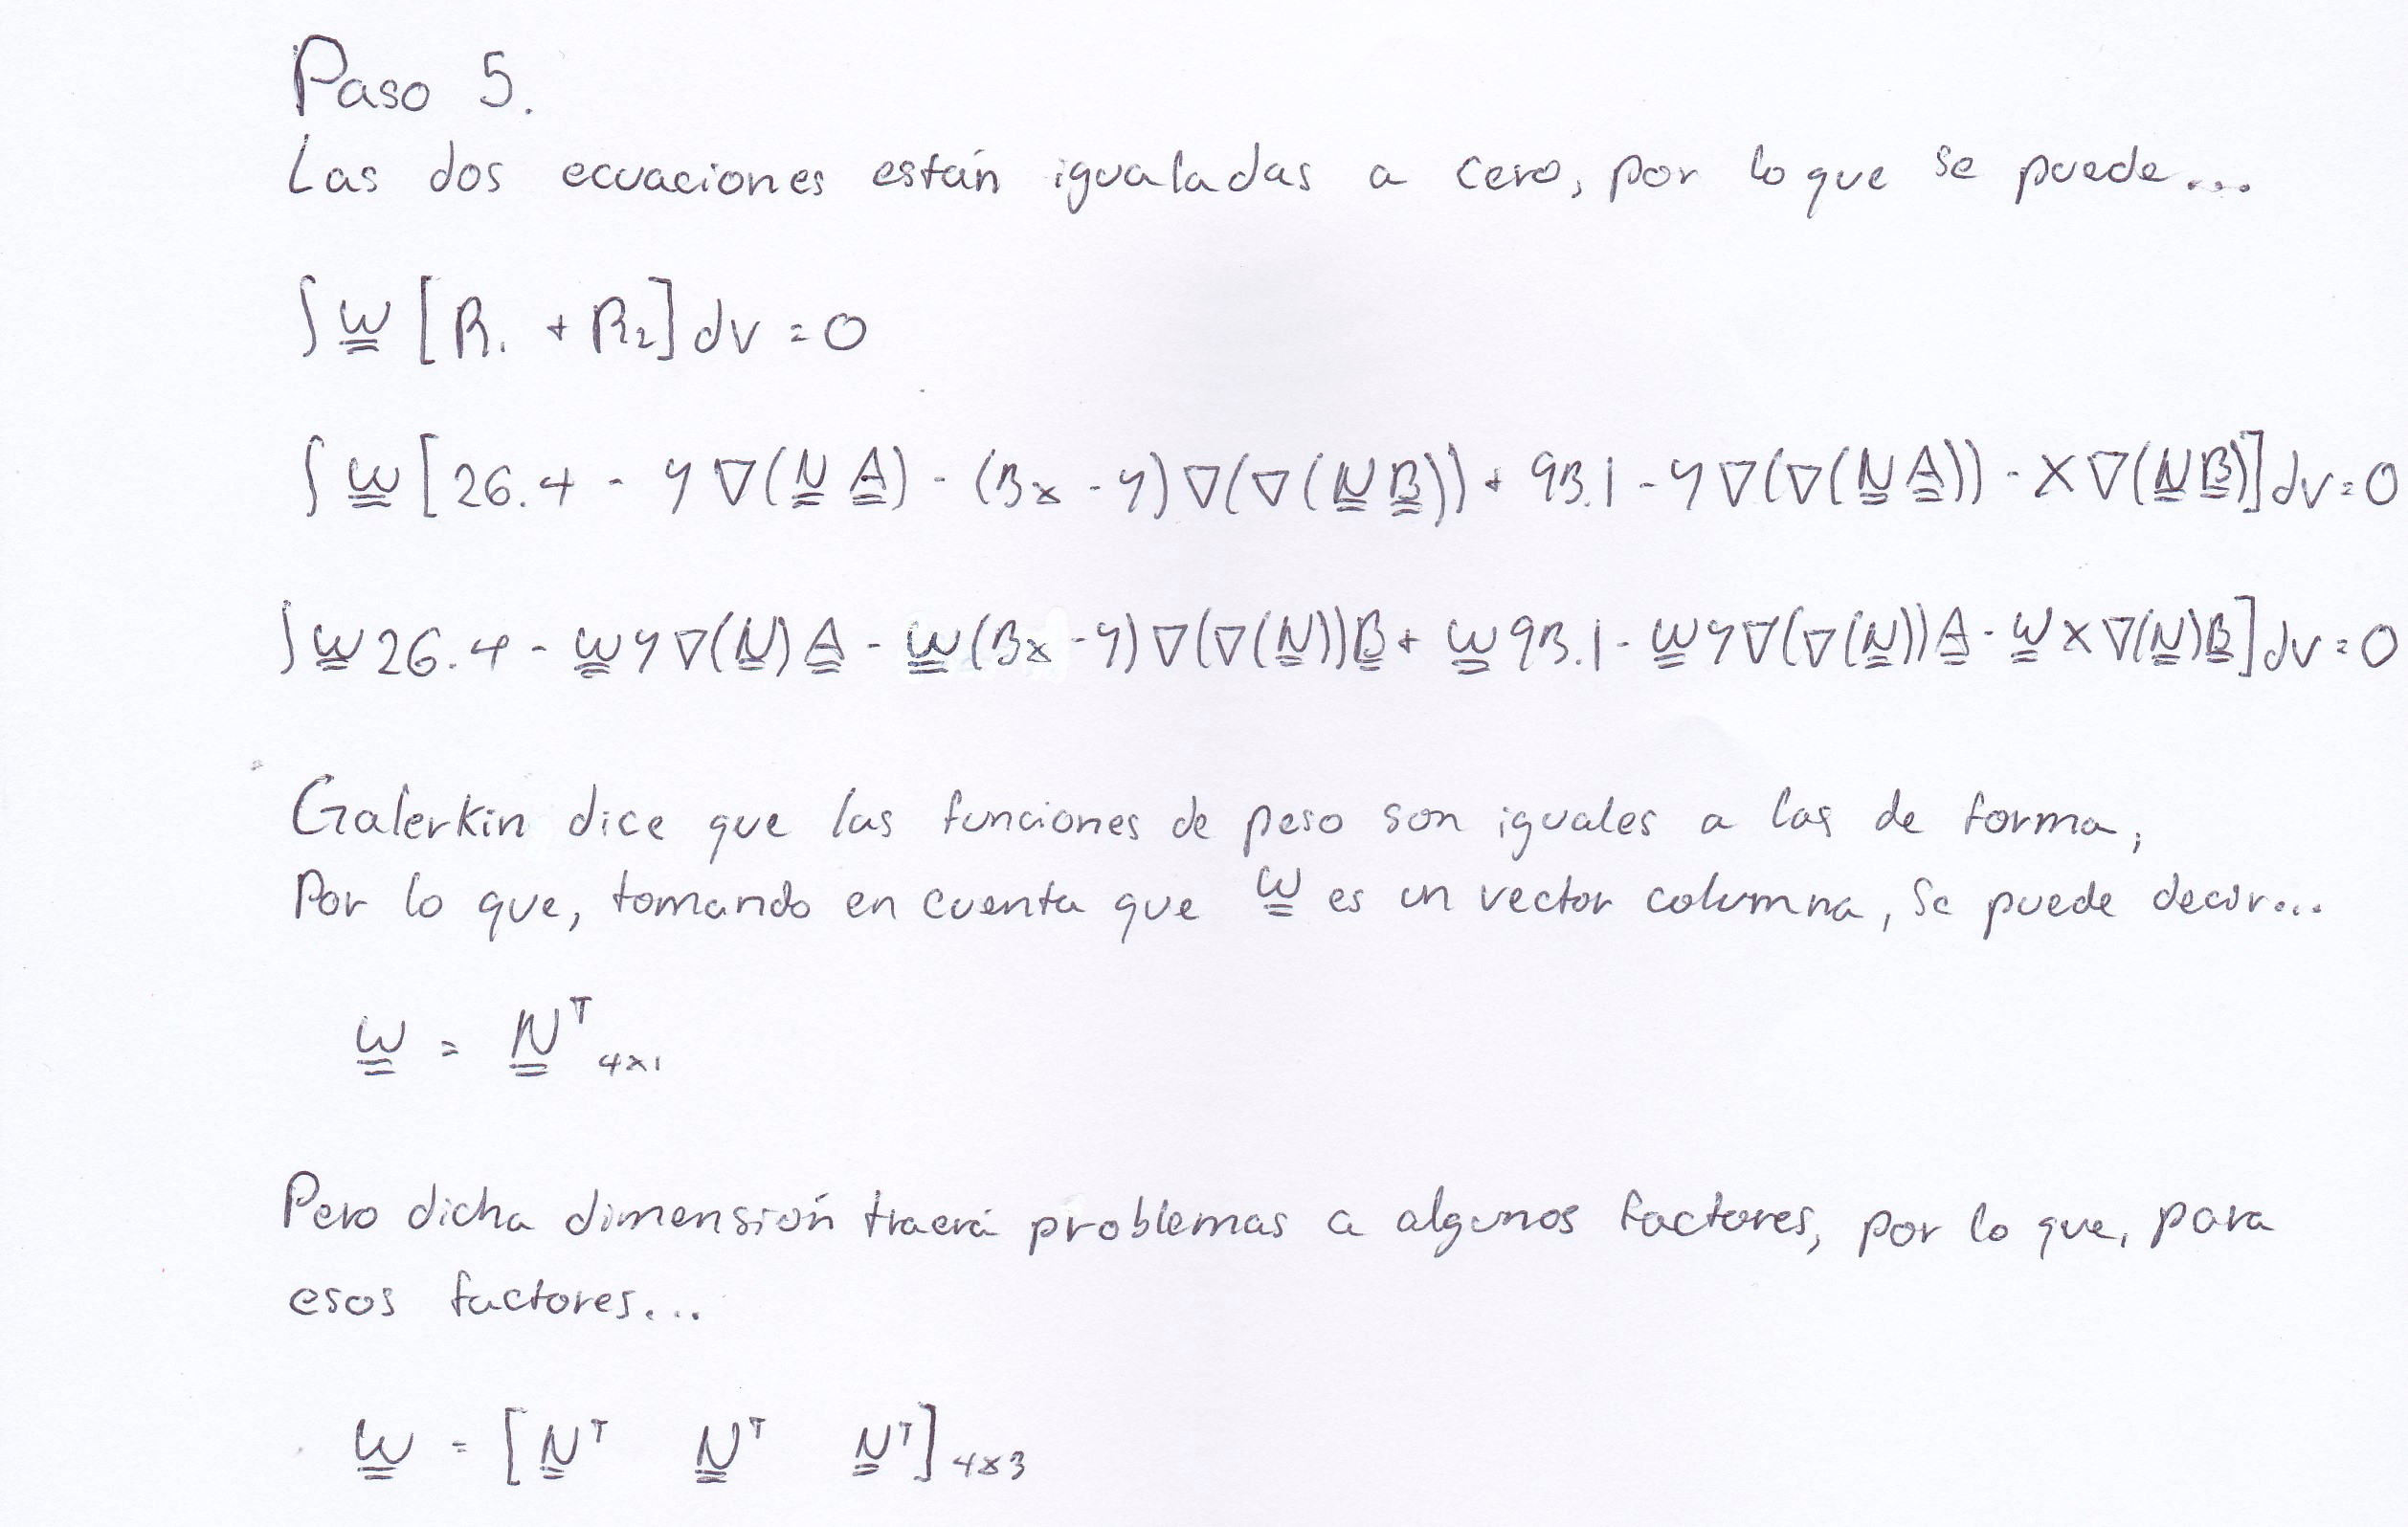 Paso 5.
Las dos ecuaciones están igualadas a cero, por lo que se puede...
∫ W̳ [R₁ + R₂] dv = 0
∫ W̳ [26.4 - y ∇(N̳ A̳) - (3x - y) ∇(∇(N̳ B̳)) + 93.1 - y ∇(∇(N̳ A̳)) - x ∇(N̳ B̳)] dv = 0
∫ W̳ 26.4 - W̳ y ∇(N̳) A̳ - W̳ (3x - y) ∇(∇(N̳)) B̳ + W̳ 93.1 - W̳ y ∇(∇(N̳)) A̳ - W̳ x ∇(N̳) B̳] dv = 0
Galerkin dice que las funciones de peso son iguales a las de forma,
Por lo que, tomando en cuenta que W̳ es un vector columna, se puede decir...
W̳ = N̳ᵀ 4x1
Pero dicha dimensión traerá problemas a algunos factores, por lo que, para
esos factores...
W̳ = [N̳ᵀ N̳ᵀ N̳ᵀ] 4x3